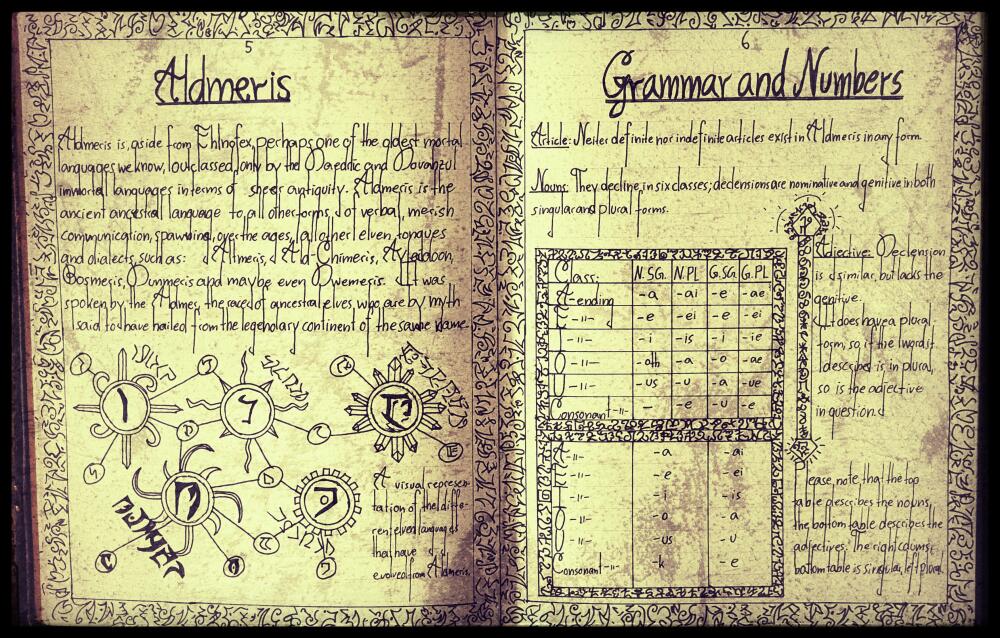 5
Aldmeris
Aldmeris is, aside from Ehlnofex, perhaps one of the oldest mortal
languages we know, outclassed only by the Daedric and Dovahzul
immortal languages in terms of sheer antiquity. Aldmeris is the
ancient ancestral language to all other forms of verbal, merish
communication, spawning, over the ages, all other elven tongues
and dialects, such as: Altmeris, Ald-Chimeris, Ayleidoon,
Bosmeris, Dunmeris and maybe even Dwemeris. It was
spoken by the Aldmer, the race of ancestral elves, who are by myth
said to have hailed from the legendary continent of the same name.
A visual represen-
tation of the diffe-
rent elven languages
that have
evolved from Aldmeris.
6
Grammar and Numbers
Article: Neiter definite nor indefinite articles exist in Aldmeris in any form.
Nouns: They decline in six classes; declensions are nominative and genitive in both
singular and plural forms.
Class: N.SG. N.PL G.SG. G.PL
A-ending -a -ai -e -ae
E -11- -e -ei -e -ei
I -11- -i -is -i -ie
O -11- -oth -a -o -ae
U -11- -us -u -a -ue
Consonant -11- - -e -u -e
A -11- -a -ai
E -11- -e -ei
I -11- -i -is
O -11- -o -a
U -11- -us -u
Consonant -11- -k -e
Adjective: Declension
is similar, but lacks the
genitive.
It does have a plural
form, so if the word it
describes is in plural,
so is the adjective
in question.
Please, note that the top
table describes the nouns,
the bottom table describes the
adjectives. The right
bottom table is singular, left plural.